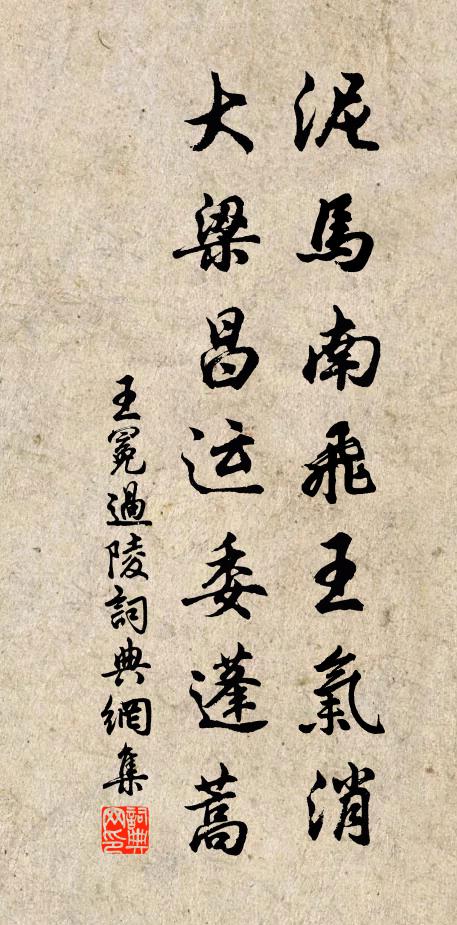 泥馬南飛王氣消
大梁昌运委蓬蒿
王冕過陵詞典網集
詞典网印